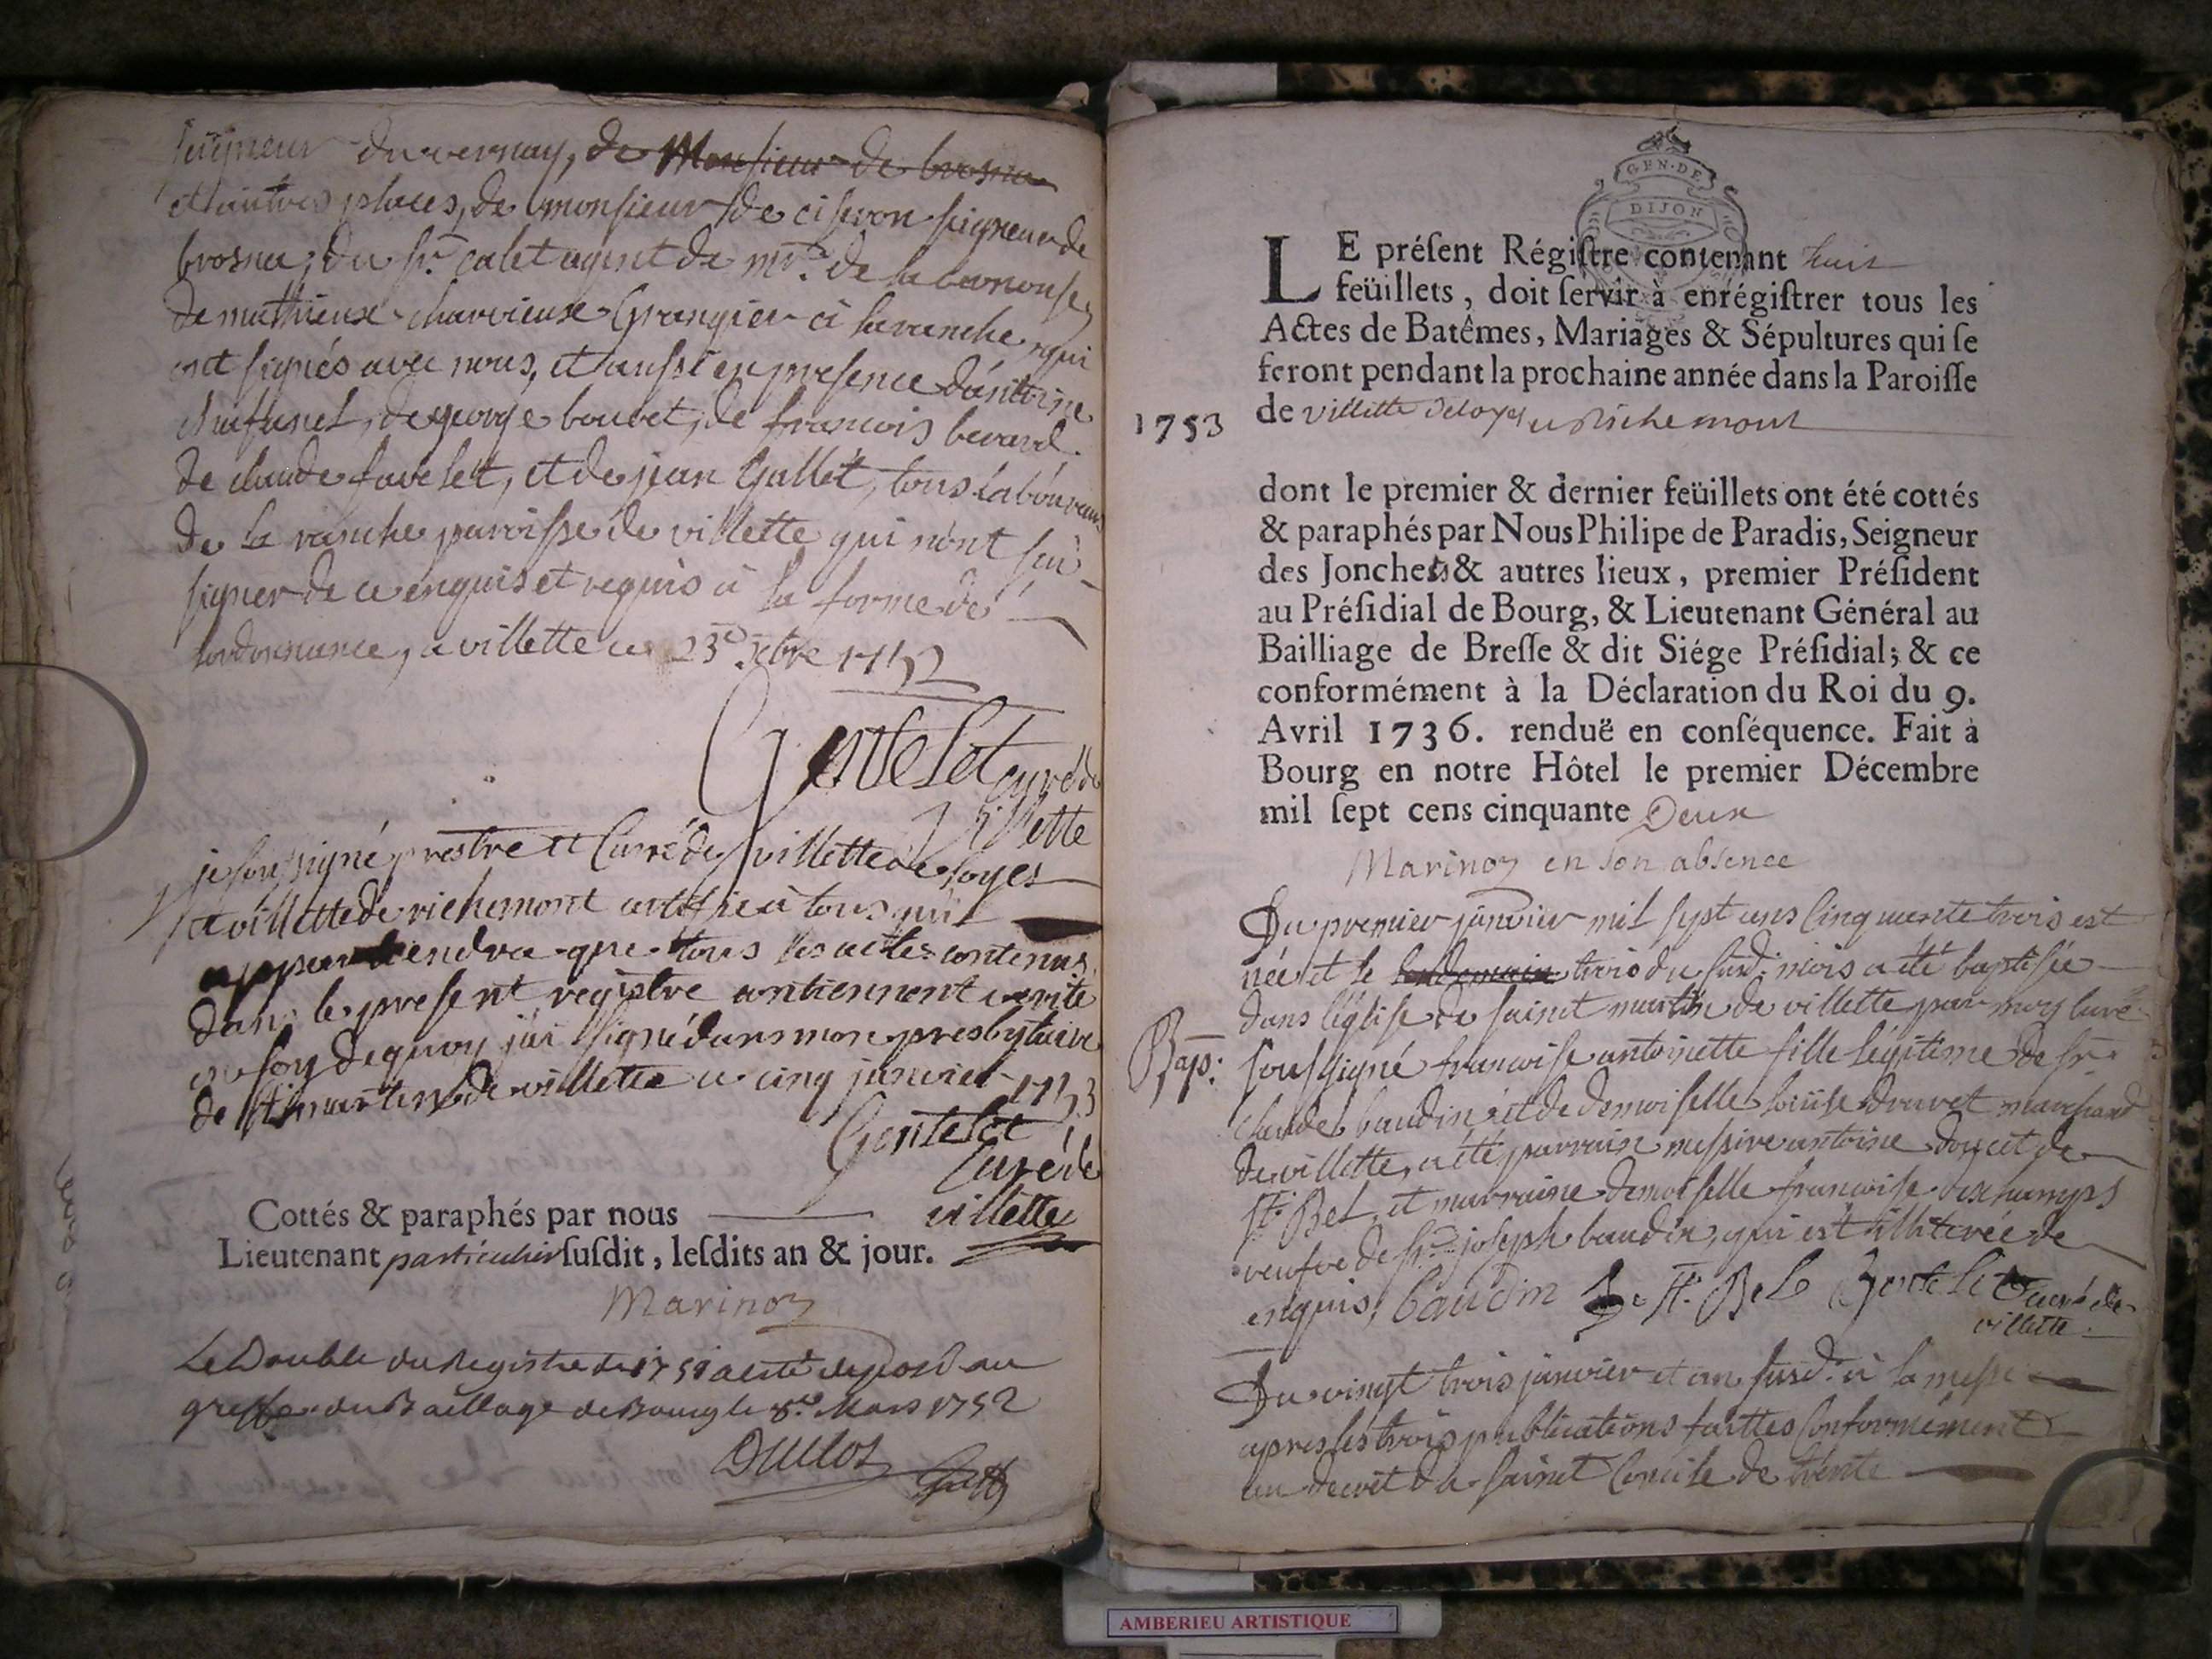 seigneur du vernay, de Monsieur de brosna
et autres places, de monsieur de ciseron seigneur de
brosna, du sr. calet agent de mr. de la
de mathieux charvieux Grangier à la ranche qui
ont signés avec nous, et aussi en presence d'antoine
de george bouvet, de francois berard
de claude favelet, et de jean Gallet, tous laboureurs
de la ranche paroisse de villette qui n'ont sçu
signer de ce enquis et requis à la forme de
lordonnance, a villette ce 23e. xbre 1752
Gontelet curé de
Villette
je soussigné prestre et Curé de villette de loyes
et villette de richemont certifie à tous qu'il
appartiendra que tous les actes contenus
dans le present registre contiennent verité
en foy de quoy j'ai signé dans mon presbytaire
de st martin de villette ce cinq janvier 1753
Gontelet
Curé de
villette
Cottés & paraphés par nous
Lieutenant particulier susdit, lesdits an & jour.
Marinon
Le Double du Registre de 1751 a esté deposé au
greffe du Bailliage de Bourg le 8e. Mars 1752
Duclos
GEN. DE
DIJON
LE préſent Régiſtre contenant huit
feüillets, doit ſervir à enrégiſtrer tous les
Actes de Batêmes, Mariages & Sépultures qui ſe
feront pendant la prochaine année dans la Paroiſſe
1753 de villette Deloyes et Richemont
dont le premier & dernier feüillets ont été cottés
& paraphés par Nous Philipe de Paradis, Seigneur
des Jonches & autres lieux, premier Préſident
au Préſidial de Bourg, & Lieutenant Général au
Bailliage de Breſſe & dit Siége Préſidial; & ce
conformément à la Déclaration du Roi du 9.
Avril 1736. renduë en conſéquence. Fait à
Bourg en notre Hôtel le premier Décembre
mil ſept cens cinquante Deux
Marinon en son absence
Du premier janvier mil sept cens Cinquante trois est
née et le lendemain trois du susd. mois a été baptisée
dans l'église de sainct martin de villette par moy curé
Bap: soussigné francoise antoinette fille légitime de sr.
claude baudin et de demoiselle louise drevet marchand
de villette, a été parrain messire antoine de
st. Bel, et marraine demoiselle francoise deschamps
veufve de sr. joseph baudin, qui est illiterée de
enquis, baudin De st. Bel Gontelet curé de
villette.
Du vingt trois janvier et an susd. à la messe
apres les trois publications faittes Conformément
au decret du sainct Concile de trente
AMBERIEU ARTISTIQUE